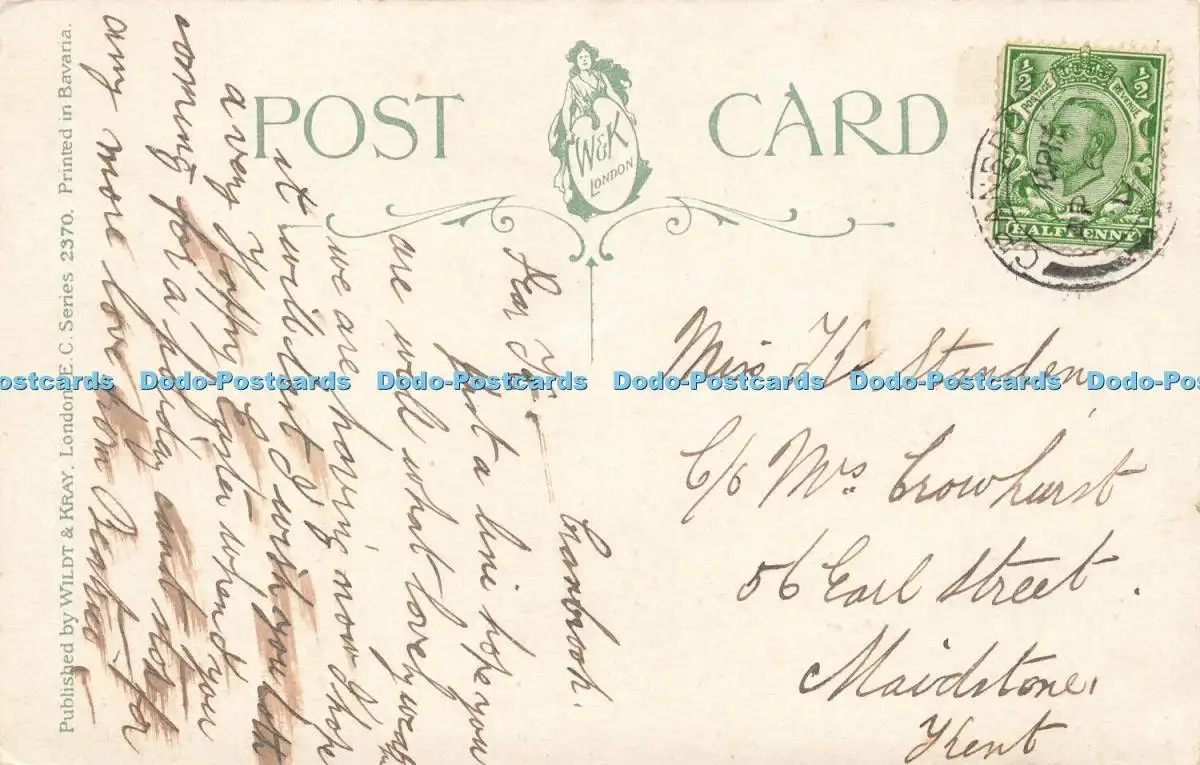 POST CARD
W&K
LONDON
½ ½
POSTAGE REVENUE
HALFPENNY
CRANBROOK
AP
Published by WILDT & KRAY, London, E.C. Series 2370. Printed in Bavaria.
Cranbrook.
Dear
Just a line hope you
are well what lovely
we are having now I hope
it will last I wish you both
a very Happy Easter when do you
coming for a holiday must stop for
any more love from
Miss K Standen
C/o Mrs. Crowhurst
56 Earl Street.
Maidstone,
Kent
Dodo-Postcards Dodo-Postcards Dodo-Postcards Dodo-Postcards Dodo-Postcards Dodo-Postcards